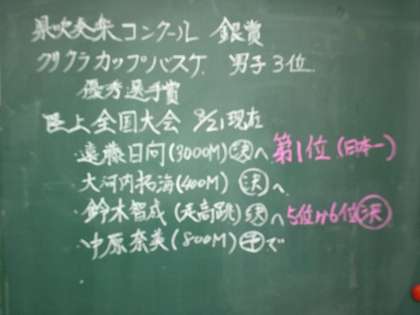 県吹奏楽コンクール 銀賞
クリクラカップバスケ. 男子3位.
優秀選手賞
陸上全国大会 8/21現在
・遠藤日向(3000M)決へ 第1位(日本一)
・大河内拓海(400M) 決へ
・鈴木智成(走高跳)決へ 5位か6位決
・中原奈美(800M)準で
・